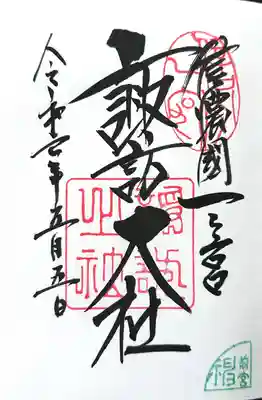 信濃國一之宮
諏訪大社
令和年五月五日
諏訪
前宮